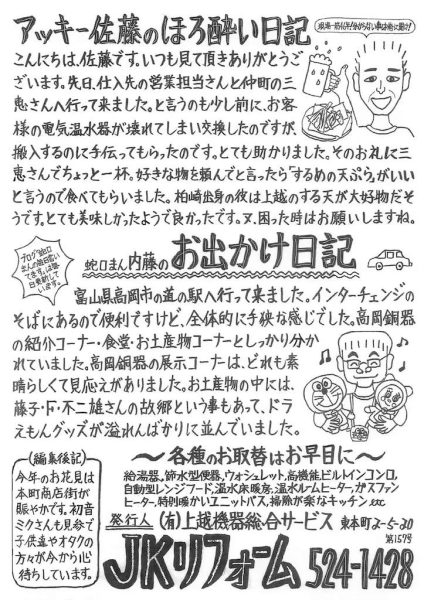 アッキー佐藤のほろ酔い日記
こんにちは、佐藤です。いつも見て頂きありがとうご
ざいます。先日、仕入先の営業担当さんと仲町の三
恵さんへ行って来ました。と言うのも少し前に、お客
様の電気温水器が壊れてしまい交換したのですが、
搬入するのに手伝ってもらったのです。とても助かりました。そのお礼に三
恵さんでちょっと一杯。好きな物を頼んでと言ったら「するめの天ぷら」がいい
と言うので食べてもらいました。柏崎出身の彼は上越のする天が大好物だそ
うです。とても美味しかったようで良かったです。又、困った時はお願いしますね。
蛇口まん内藤のお出かけ日記
ブログ「蛇口
まんの毎日書い
てます。は毎
日更新して
います。
富山県高岡市の道の駅へ行って来ました。インターチェンジの
そばにあるので便利ですけど、全体的に手狭な感じでした。高岡銅器
の紹介コーナー・食堂・お土産物コーナーとしっかり分か
れていました。高岡銅器の展示コーナーは、どれも素
晴らしくて見応えがありました。お土産物の中には、
藤子・F・不二雄さんの故郷という事もあって、ドラ
えもんグッズが溢れんばかりに並んでいました。
〜各種のお取替はお早目に〜
給湯器。節水型便器。ウォシュレット。高機能ビルトインコンロ。
自動型レンジフード。温水床暖房。温水ルームヒーター。ガスファン
ヒーター。特別暖かいユニットバス。掃除が楽なキッチン etc
(編集後記)
今年のお花見は
本町商店街が
賑やかです。初音
ミクさんも見参で
子供達やオタクの
方々が今から心
待ちしています。
発行人 (有)上越機器総合サービス 東本町2-5-30
第157号
JKリフォーム 524-1428